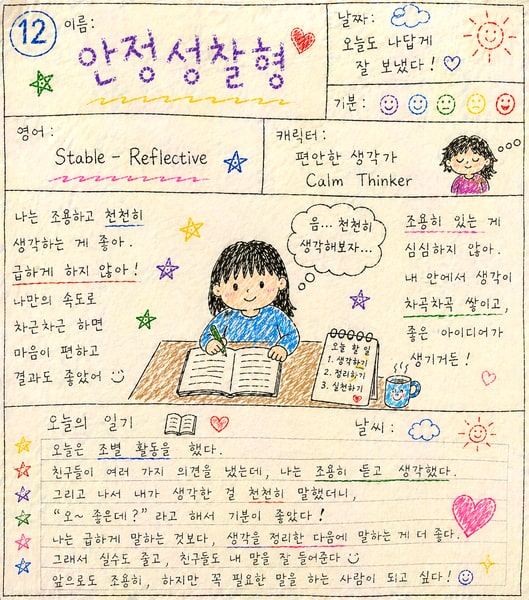 12
이름:
안정성찰형
날짜:
오늘도 나답게
잘 보냈다!
기분:
영어:
Stable - Reflective
캐릭터:
편안한 생각가
Calm Thinker
나는 조용하고 천천히
생각하는 게 좋아.
급하게 하지 않아!
나만의 속도로
차근차근 하면
마음이 편하고
결과도 좋았어
음... 천천히
생각해보자...
오늘 할 일
1. 생각하기
2. 정리하기
3. 실천하기
조용히 있는 게
심심하지 않아.
내 안에서 생각이
차곡차곡 쌓이고,
좋은 아이디어가
생기거든!
오늘의 일기
날씨:
오늘은 조별 활동을 했다.
친구들이 여러 가지 의견을 냈는데, 나는 조용히 듣고 생각했다.
그리고 나서 내가 생각한 걸 천천히 말했더니,
"오~ 좋은데?" 라고 해서 기분이 좋았다!
나는 급하게 말하는 것보다, 생각을 정리한 다음에 말하는 게 더 좋다.
그래서 실수도 줄고, 친구들도 내 말을 잘 들어준다
앞으로도 조용히, 하지만 꼭 필요한 말을 하는 사람이 되고 싶다!